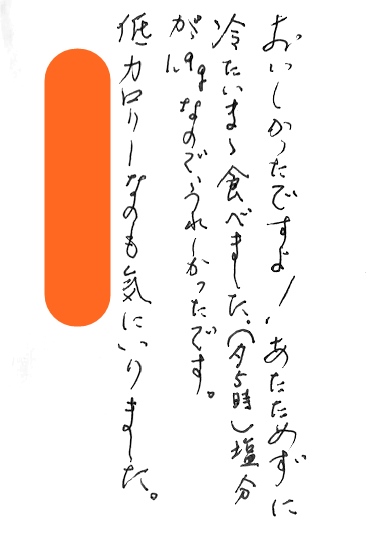 おいしかったですよ！、あたためずに
冷たいまゝ食べました。（夕5時）塩分
が1.9gなのでうれしかったです。
低カロリーなのも気にいりました。